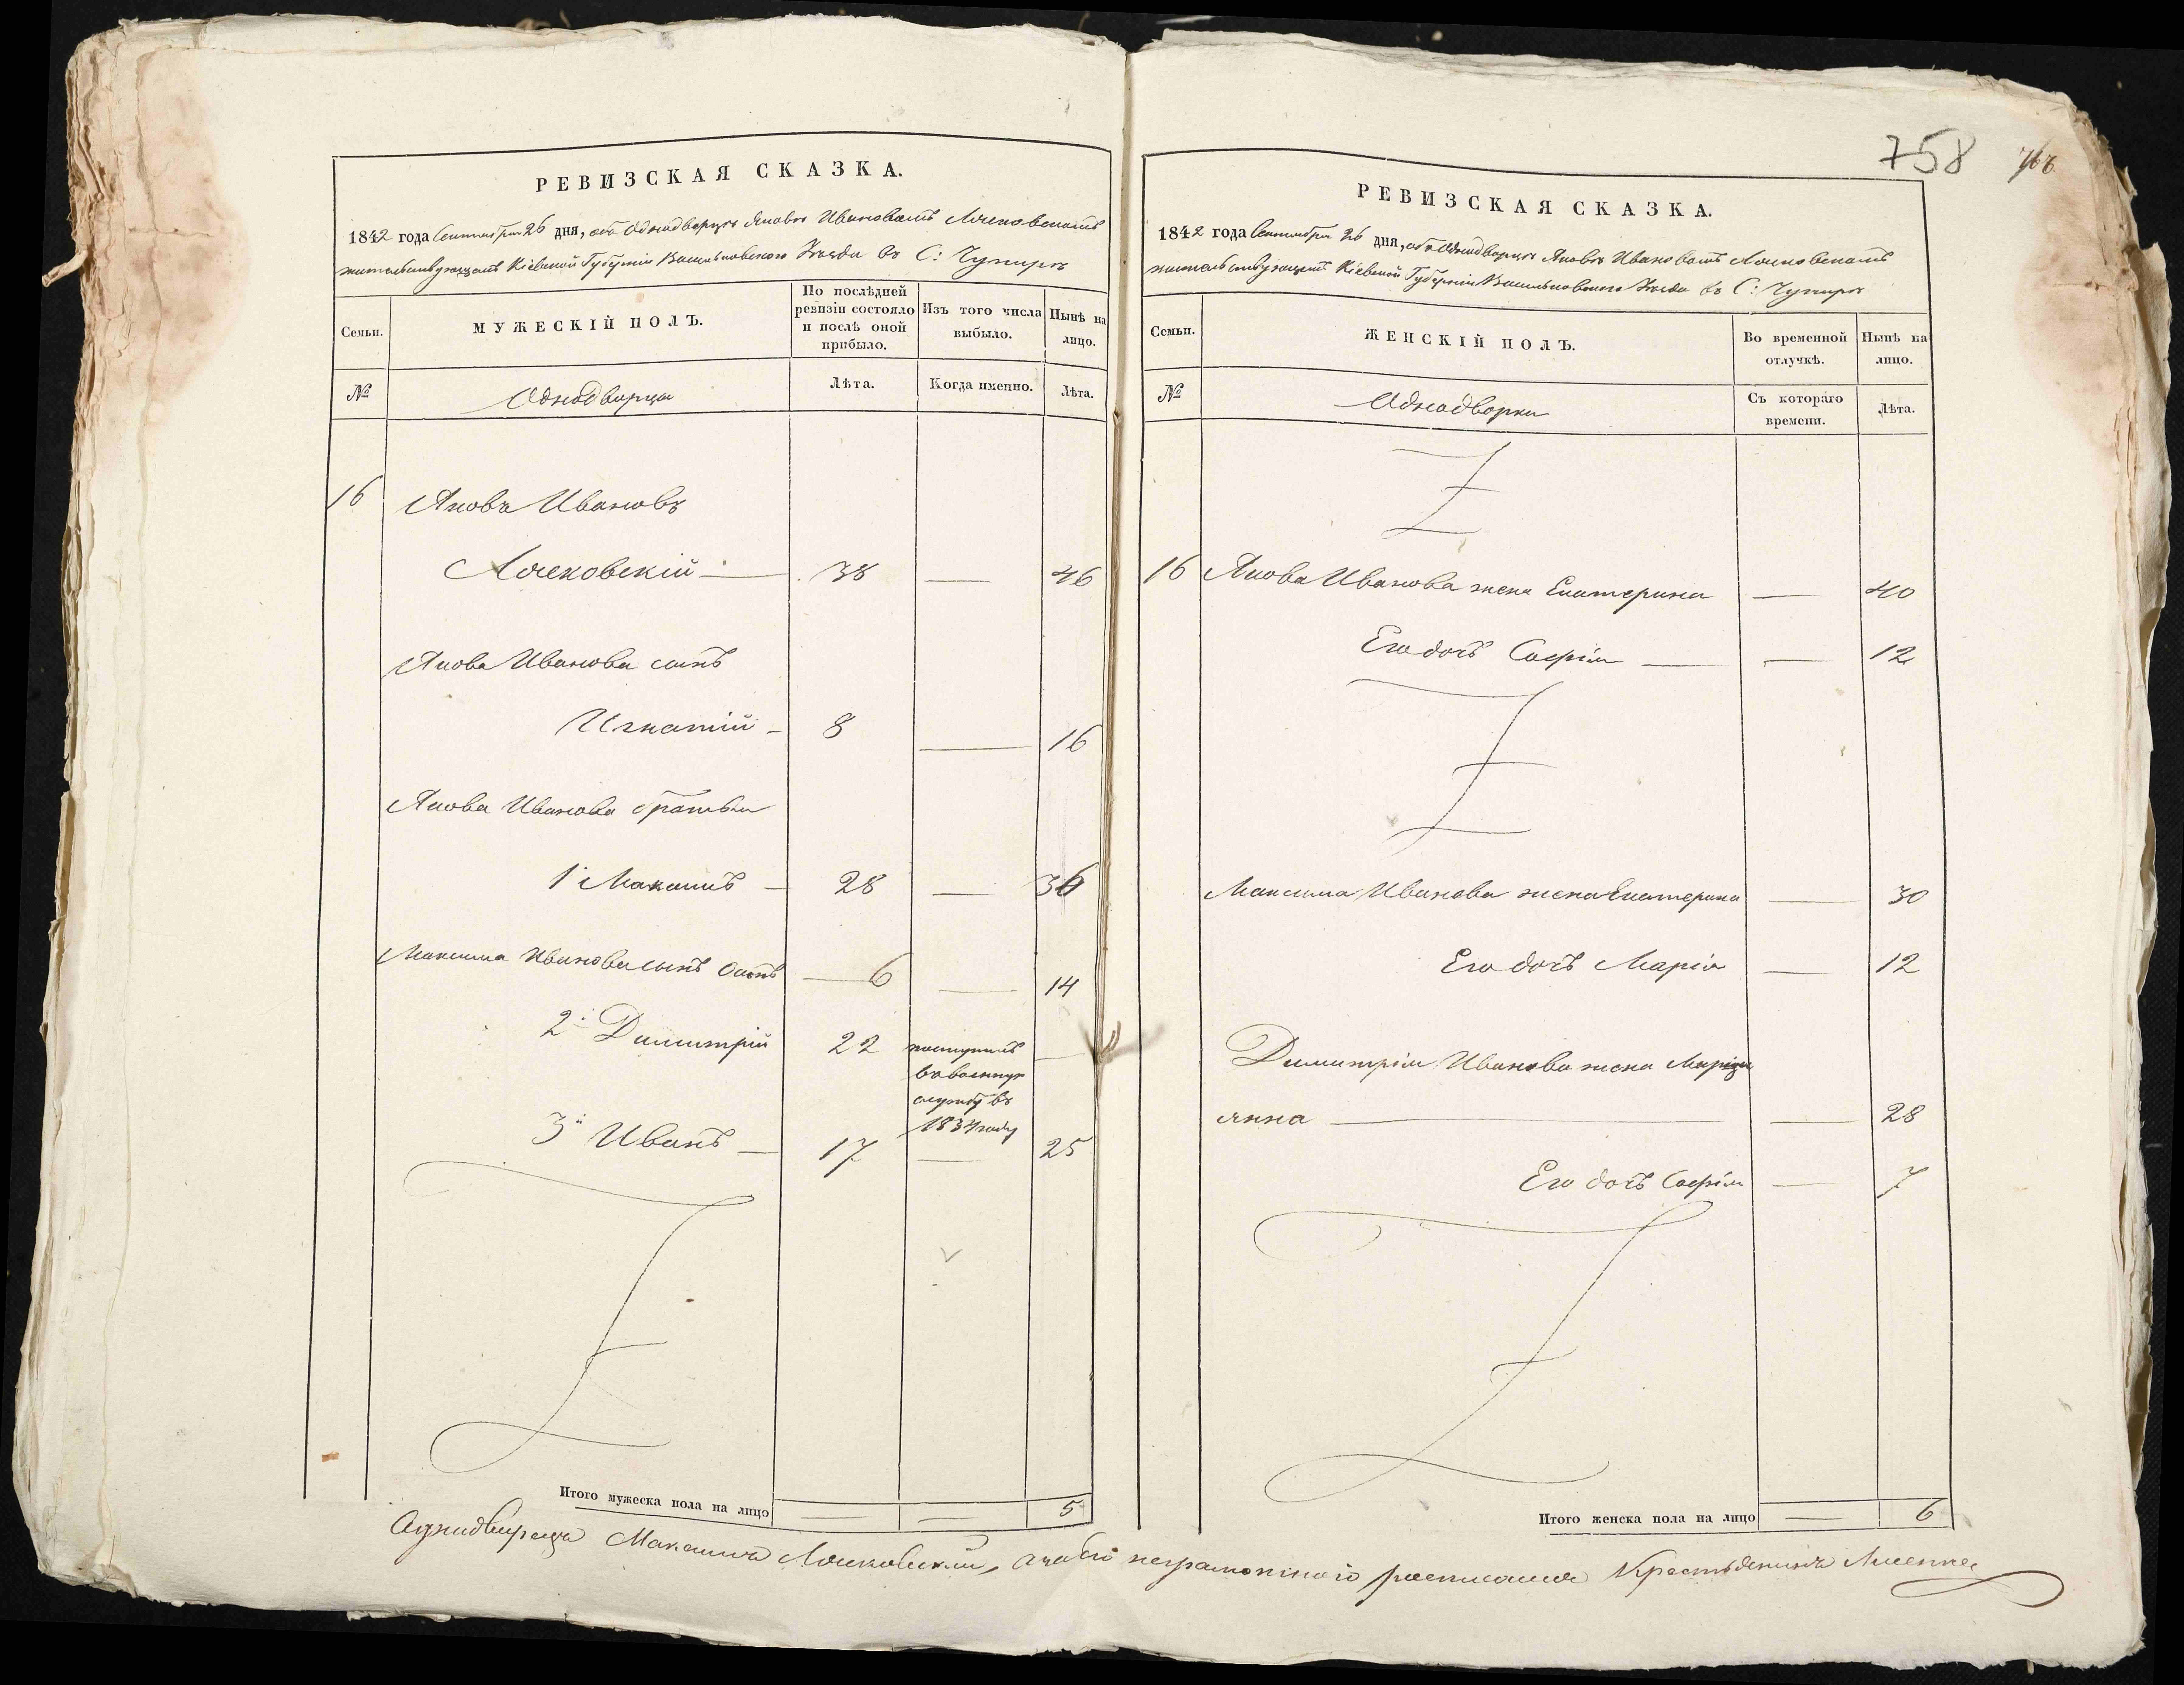 758
РЕВИЗСКАЯ СКАЗКА.
1842 года Сентября 26 дня, объ Однодворцѣ Яковѣ Ивановомъ
жительствующемъ Кіевской Губерніи Васильковскаго Уѣзда въ С:
Семьи.
МУЖЕСКІЙ ПОЛЪ.
По послѣдней
ревизіи состояло
и послѣ оной
прибыло.
Изъ того числа
выбыло.
Нынѣ на
лицо.
№
Однодворцы
Лѣта.
Когда именно.
Лѣта.
16 Яковъ Ивановъ
38 — 46
Якова Иванова сынъ
Игнатій — 8 — 16
Якова Иванова братья
1й Максимъ — 28 — 36
Максима Иванова сынъ — 6 — 14
2й Димитрій 22 поступилъ —
въ военную
службу въ
1834 году
3й Иванъ — 17 — 25
Итого мужеска пола на лицо
5
РЕВИЗСКАЯ СКАЗКА.
1842 года Сентября 26 дня, объ Однодворцѣ Яковѣ Ивановомъ
жительствующемъ Кіевской Губерніи Васильковскаго Уѣзда въ С:
Семьи.
ЖЕНСКІЙ ПОЛЪ.
Во временной
отлучкѣ.
Нынѣ на
лицо.
№
Однодворки
Съ котораго
времени.
Лѣта.
16 Якова Иванова жена Екатерина — 40
Его дочь Софія — — 12
Максима Иванова жена Екатерина — 30
Его дочь Марія — 12
Димитрія Иванова жена
анна — — 28
Его дочь Софія — 7
Итого женска пола на лицо
6
Максимъ неграмотного росписался Крестьянинъ